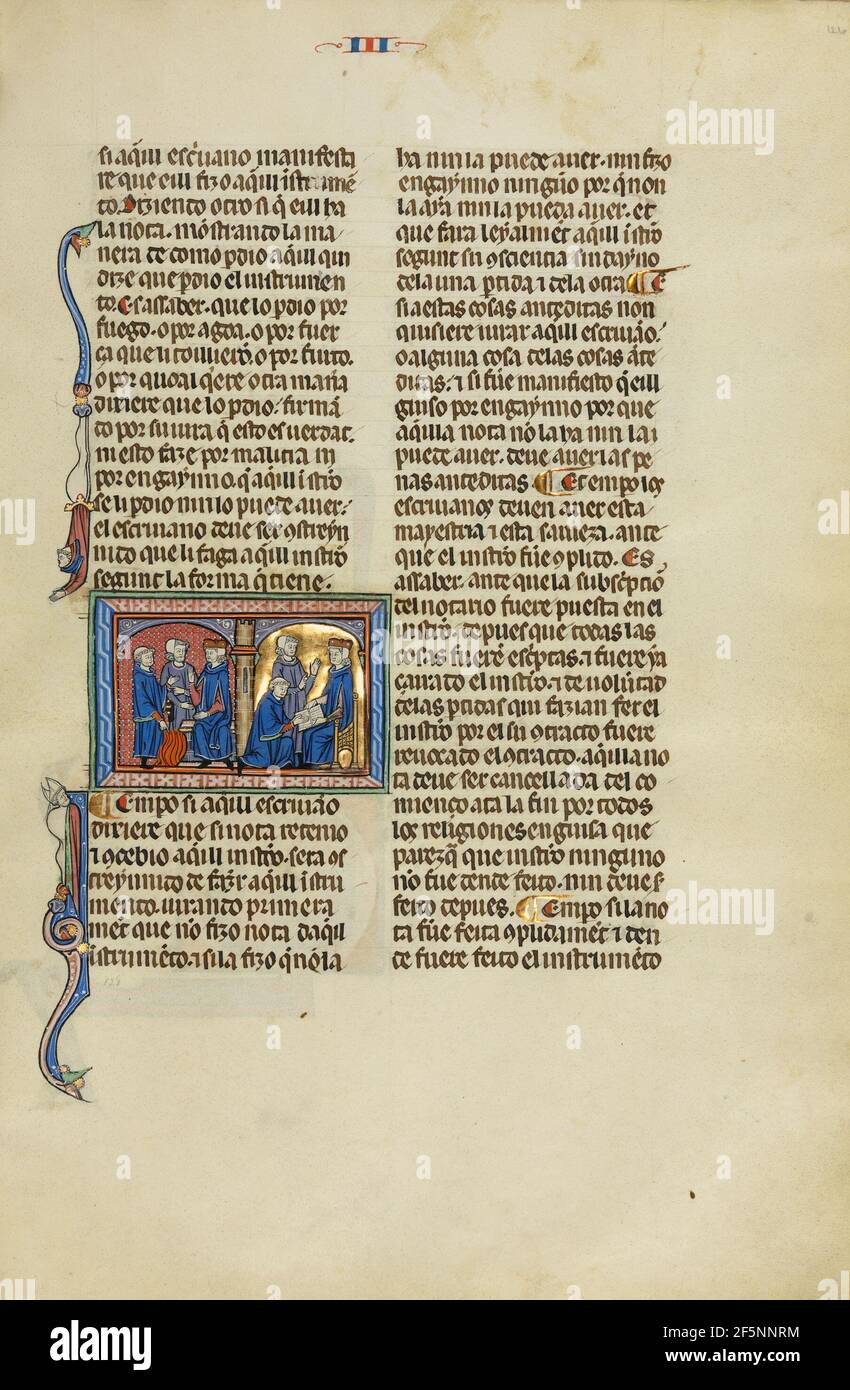 III
126
si aq̃ill esc̃uano manifesta
re que eill fizo aq̃ill īstrumē
to. Diziendo otro si q̃ eill ha
la nota. mõstrando la ma
nera de como p̱dio aquill qui
dize que p̱dio el instrumen
to. Es assaber. que lo p̱dio por
fuego. o por agoa. o por fuer
ça que li touiero. o por furto.
o por qual q̃ere otra mañia
dixiere que lo p̱dio. firmā
do por su iura q̃ esto es uerdat.
ni esto faze por malicia ni
por engaynno. q̃ aq̃ill īstro
se li p̱dio nin lo puede auer.
el escriuano deue ser ꝯstreyn
nido que li faga aq̃ill instro
segunt la forma q̃ tiene.
Empo si aquill escriuão
dixiere que si nota retenio
⁊ ꝯcebio aquill instro. sera ꝯs
treynnido de fazer aquill īstru
mento. iurando primera
mēt que nõ fizo nota daq̃ill
īstrumēto. ⁊ si la fizo q̃ nõ la
ha nin la puede auer. nin fizo
engaynno ningũo por q̃ non
la aya nin la pueda auer. et
que fara leyalmēt aquill īstro
segunt su ꝯsciencia sin dayno
dela una p̱tida ⁊ dela otra. E
si a estas cosas anteditas non
quisiere iurar aquill escriuão.
o alguna cosa delas cosas āte
ditas. ⁊ si fũe manifiesto q̃ eill
guso por engaynno por que
aquilla nota nõ la ha nin la
puede auer. deue auer las pe
nas anteditas. Et empo los
escriuanos deuen auer esta
mayestria ⁊ esta sauieza. ante
que el instro fũe ꝯplido. Es
assaber. ante que la subsc̃ptiõ
del notario fuere puesta en el
instro. depues que todas las
cosas fuerē esc̃ptas. ⁊ fuere ya
çarrado el instro. ⁊ de uolũtad
delas p̱tidas qui fazian fer el
instro por el su ꝯtracto fuere
reuocado el ꝯtracto. aquilla no
ta deue ser cancellada del co
mienço ata la fin por todos
los religiones en guisa que
parezq̃ que instro ninguno
nõ fue dende feito. nin deue s̃
feito depues. Empo si la no
ta fũe feita ꝯplidamēt ⁊ den
de fuere feito el instrumēto
alamy
Image ID: 2F5NNRM
www.alamy.com